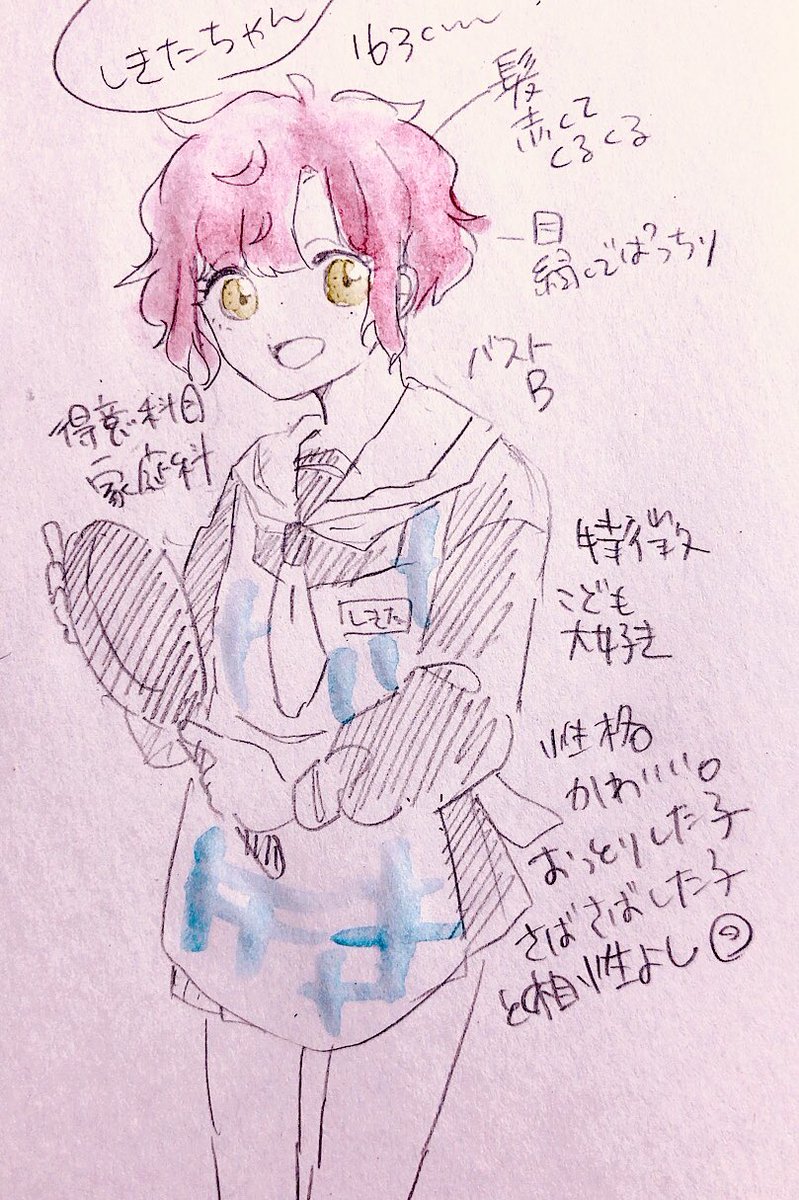 しきたちゃん
163cm
髪
赤くて
くるくる
目
緑でぱっちり
バスト
B
得意科目
家庭科
しきた
特徴
こども
大好き
性格
かわいい。
おっとりした子
さばさばした子
と相性よし